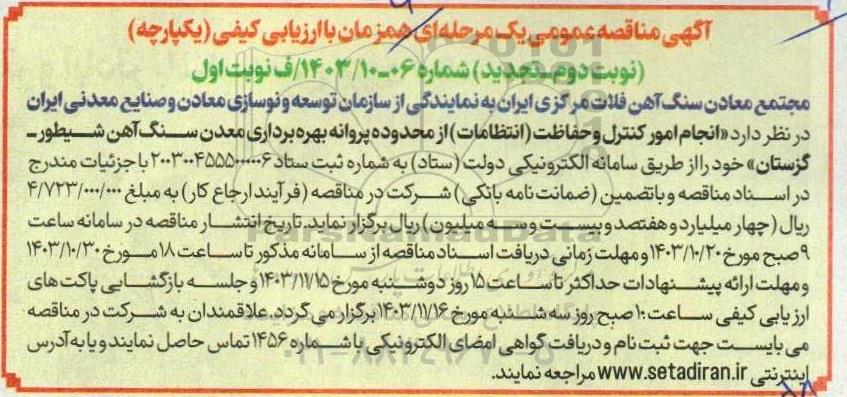 آگهی مناقصه عمومی یک مرحله‌ای همزمان با ارزیابی کیفی (یکپارچه)
(نوبت دوم_تجدید) شماره ۰۶-۱۴۰۳/۱۰/ف نوبت اول
مجتمع معادن سنگ آهن فلات مرکزی ایران به نمایندگی از سازمان توسعه و نوسازی معادن و صنایع معدنی ایران
در نظر دارد «انجام امور کنترل و حفاظت (انتظامات) از محدوده پروانه بهره برداری معدن سنگ آهن شیطور ـ
گزستان» خود را از طریق سامانه الکترونیکی دولت (ستاد) به شماره ثبت ستاد ۲۰۰۳۰۰۴۵۵۵۰۰۰۰۰۶ با جزئیات مندرج
در اسناد مناقصه و با تضمین (ضمانت نامه بانکی) شرکت در مناقصه (فرآیند ارجاع کار) به مبلغ ۴/۷۲۳/۰۰۰/۰۰۰
ریال (چهار میلیارد و هفتصد و بیست و سه میلیون) ریال برگزار نماید. تاریخ انتشار مناقصه در سامانه ساعت
۹ صبح مورخ ۱۴۰۳/۱۰/۲۰ و مهلت زمانی دریافت اسناد مناقصه از سامانه مذکور تا ساعت ۱۸ مورخ ۱۴۰۳/۱۰/۳۰
و مهلت ارائه پیشنهادات حداکثر تا ساعت ۱۵ روز دوشنبه مورخ ۱۴۰۳/۱۱/۱۵ و جلسه بازگشایی پاکت های
ارزیابی کیفی ساعت ۱۰ صبح روز سه شنبه مورخ ۱۴۰۳/۱۱/۱۶ برگزار می گردد. علاقمندان به شرکت در مناقصه
می بایست جهت ثبت نام و دریافت گواهی امضای الکترونیکی با شماره ۱۴۵۶ تماس حاصل نمایند و یا به آدرس
اینترنتی www.setadiran.ir مراجعه نمایند.